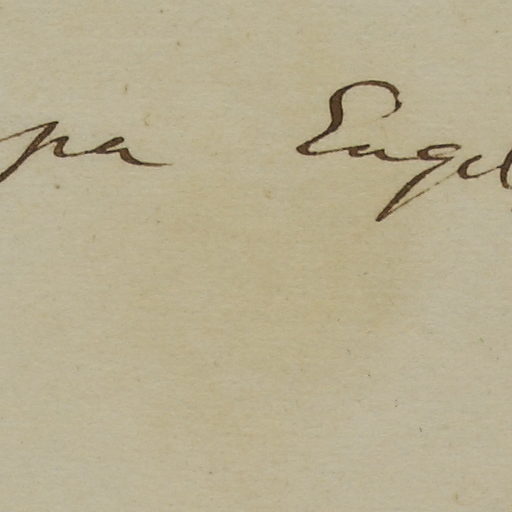 pa Engel